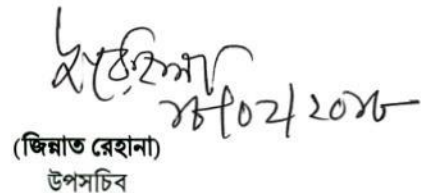 ১৮/০২/২০১৮
(জিন্নাত রেহানা)
উপসচিব